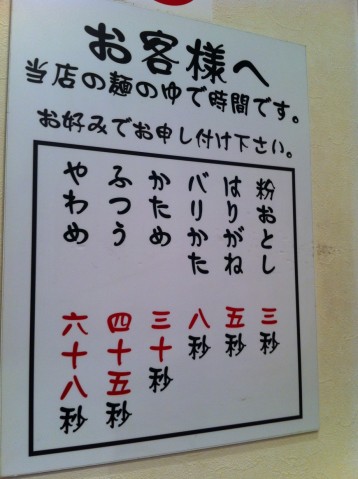 お客様へ
当店の麺のゆで時間です。
お好みでお申し付け下さい。
粉おとし 三秒
はりがね 五秒
バリかた 八秒
かため 三十秒
ふつう 四十五秒
やわめ 六十八秒